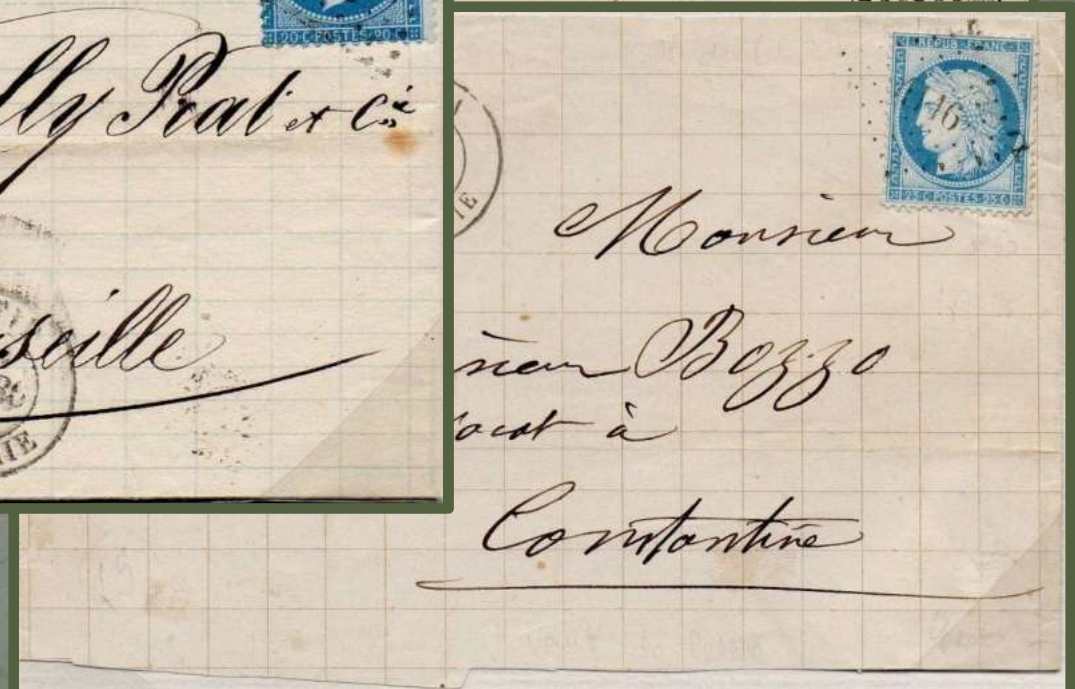 20 C POSTES 20 C
lly Prat et Cie
seille
IE
REPUB FRANC
16
25 C POSTES 25 C
IE
Monsieur
sieur Bozzo
ocat à
Constantine